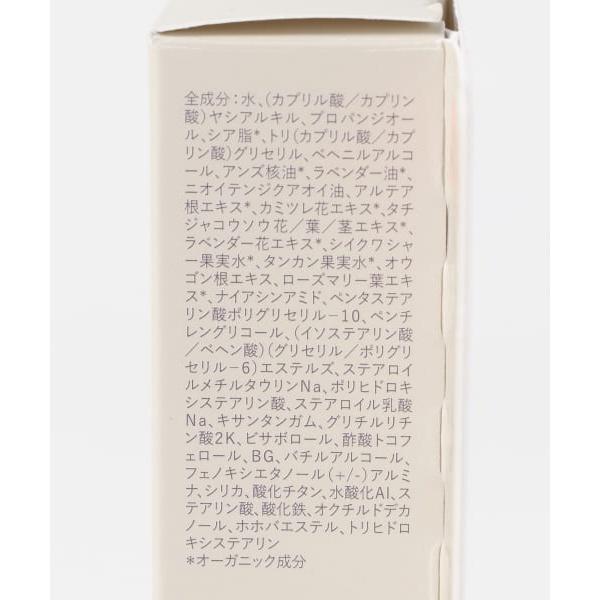 全成分：水、（カプリル酸／カプリン
酸）ヤシアルキル、プロパンジオー
ル、シア脂*、トリ（カプリル酸／カプ
リン酸）グリセリル、ベヘニルアルコ
ール、アンズ核油*、ラベンダー油*、
ニオイテンジクアオイ油、アルテア
根エキス*、カミツレ花エキス*、タチ
ジャコウソウ花／葉／茎エキス*、
ラベンダー花エキス*、シイクワシャ
ー果実水*、タンカン果実水*、オウ
ゴン根エキス、ローズマリー葉エキ
ス*、ナイアシンアミド、ペンタステア
リン酸ポリグリセリル－10、ペンチ
レングリコール、（イソステアリン酸
／ベヘン酸）（グリセリル／ポリグリ
セリル－6）エステルズ、ステアロイ
ルメチルタウリンNa、ポリヒドロキ
システアリン酸、ステアロイル乳酸
Na、キサンタンガム、グリチルリチ
ン酸2K、ビサボロール、酢酸トコフ
ェロール、BG、バチルアルコール、
フェノキシエタノール（+/-）アルミ
ナ、シリカ、酸化チタン、水酸化Al、ス
テアリン酸、酸化鉄、オクチルドデカ
ノール、ホホバエステル、トリヒドロ
キシステアリン
*オーガニック成分